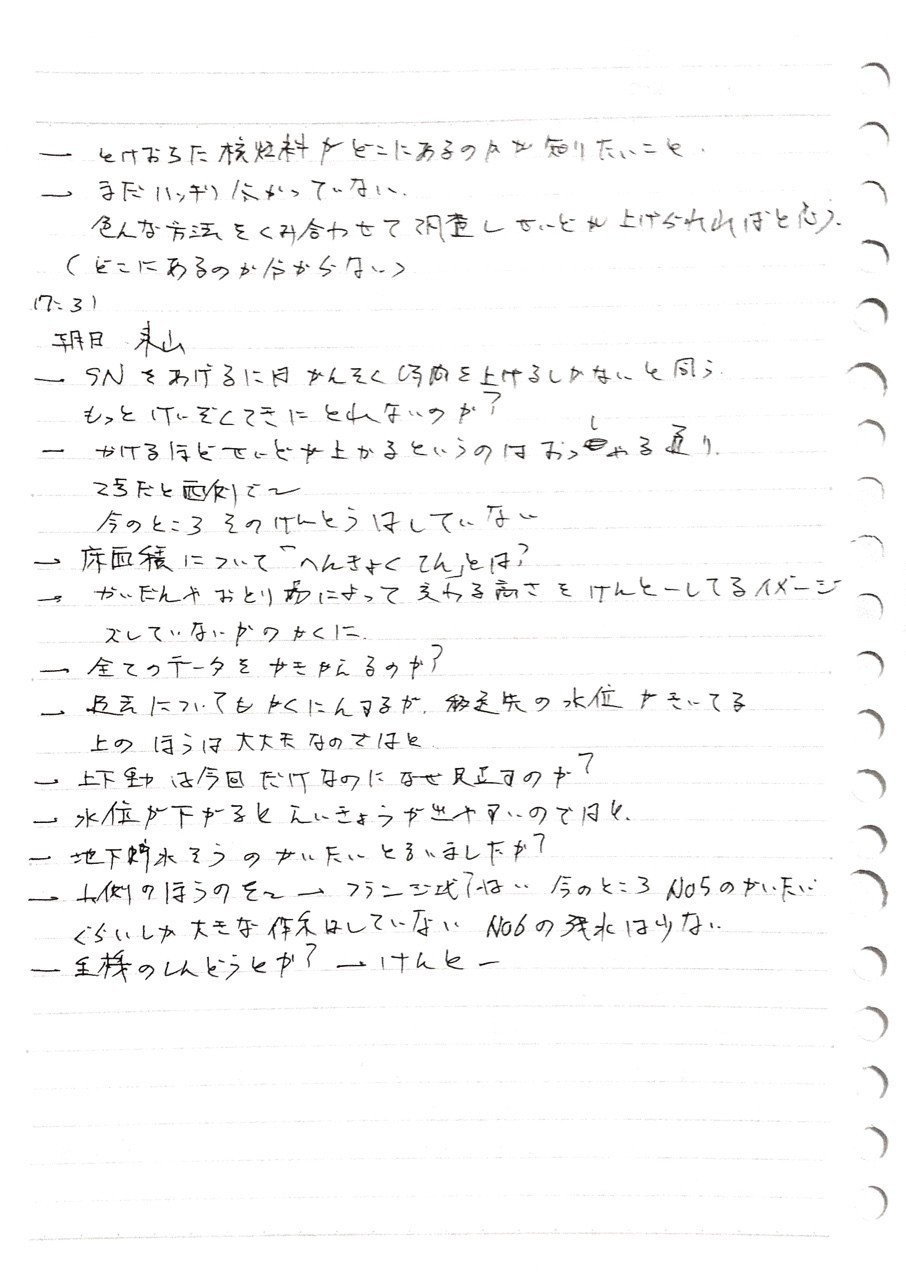 ー とけおちた核燃料がどこにあるのかが知りたいこと.
→ まだハッキリ分かっていない.
色んな方法をくみ合わせて調査しせいどが上げられればと思う.
(どこにあるのか分からない)
17:31
朝日 東山
ー SNをあげるにはかんそく時間を上げるしかないと思う.
もっとけいぞくてきにとれないのか?
ー かけるほどせいどが上がるというのはおっしゃる通り.
2号だと西側で〜
今のところそのけんとうはしていない
→ 床面積について「へんきょくてん」とは?
→ かいだんやおとり場によって変わる高さをけんとーしてるイメージ
ズしていないかのかくに.
→ 全てのデータをかきかえるのか?
→ についてもかくにんするが、移送先の水位がきいてる
上のほうは大丈夫なのではと.
→ 上下動は今回だけなのになぜ是正すのか?
→ 水位が下がるとえいきょうが出やすいのではと.
ー 地下貯水そうのかいたいと言いましたか?
→ 側のほうのを〜 → フランジ式?はい 今のところ No5のかいたい
ぐらいしか大きな作業はしていない No6の残水は少ない
ー 重機のしんどうとか? → けんとー